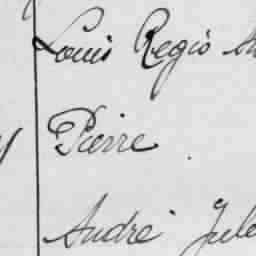 Louis Regis
Pierre
André Jule